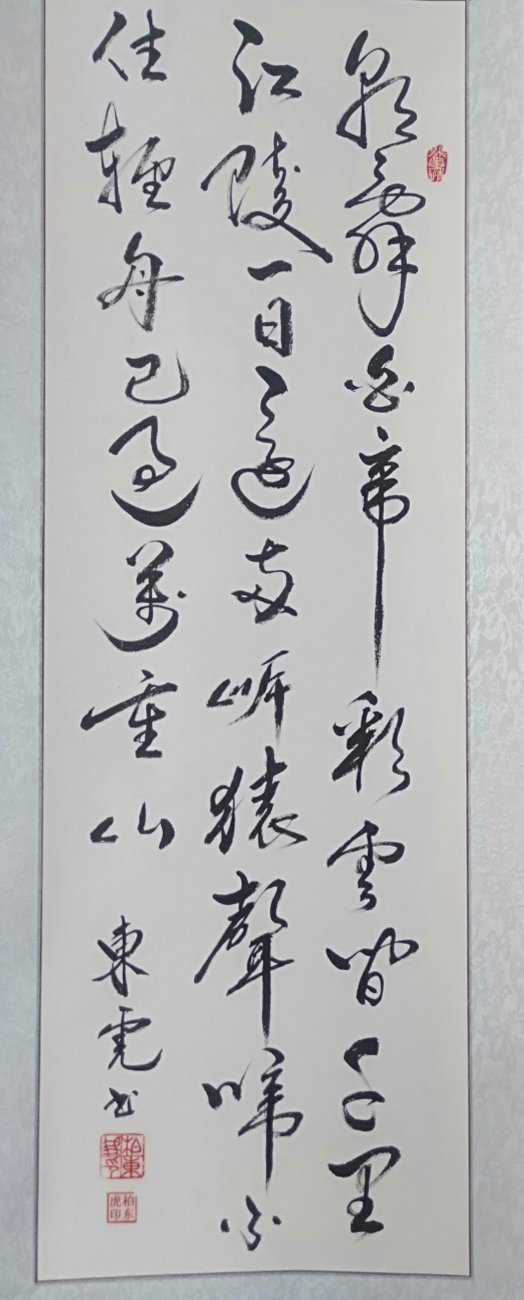 朝辭白帝彩雲間千里
江陵一日還兩岸猿聲啼不
住輕舟已過萬重山
東虎书
柏东虎印